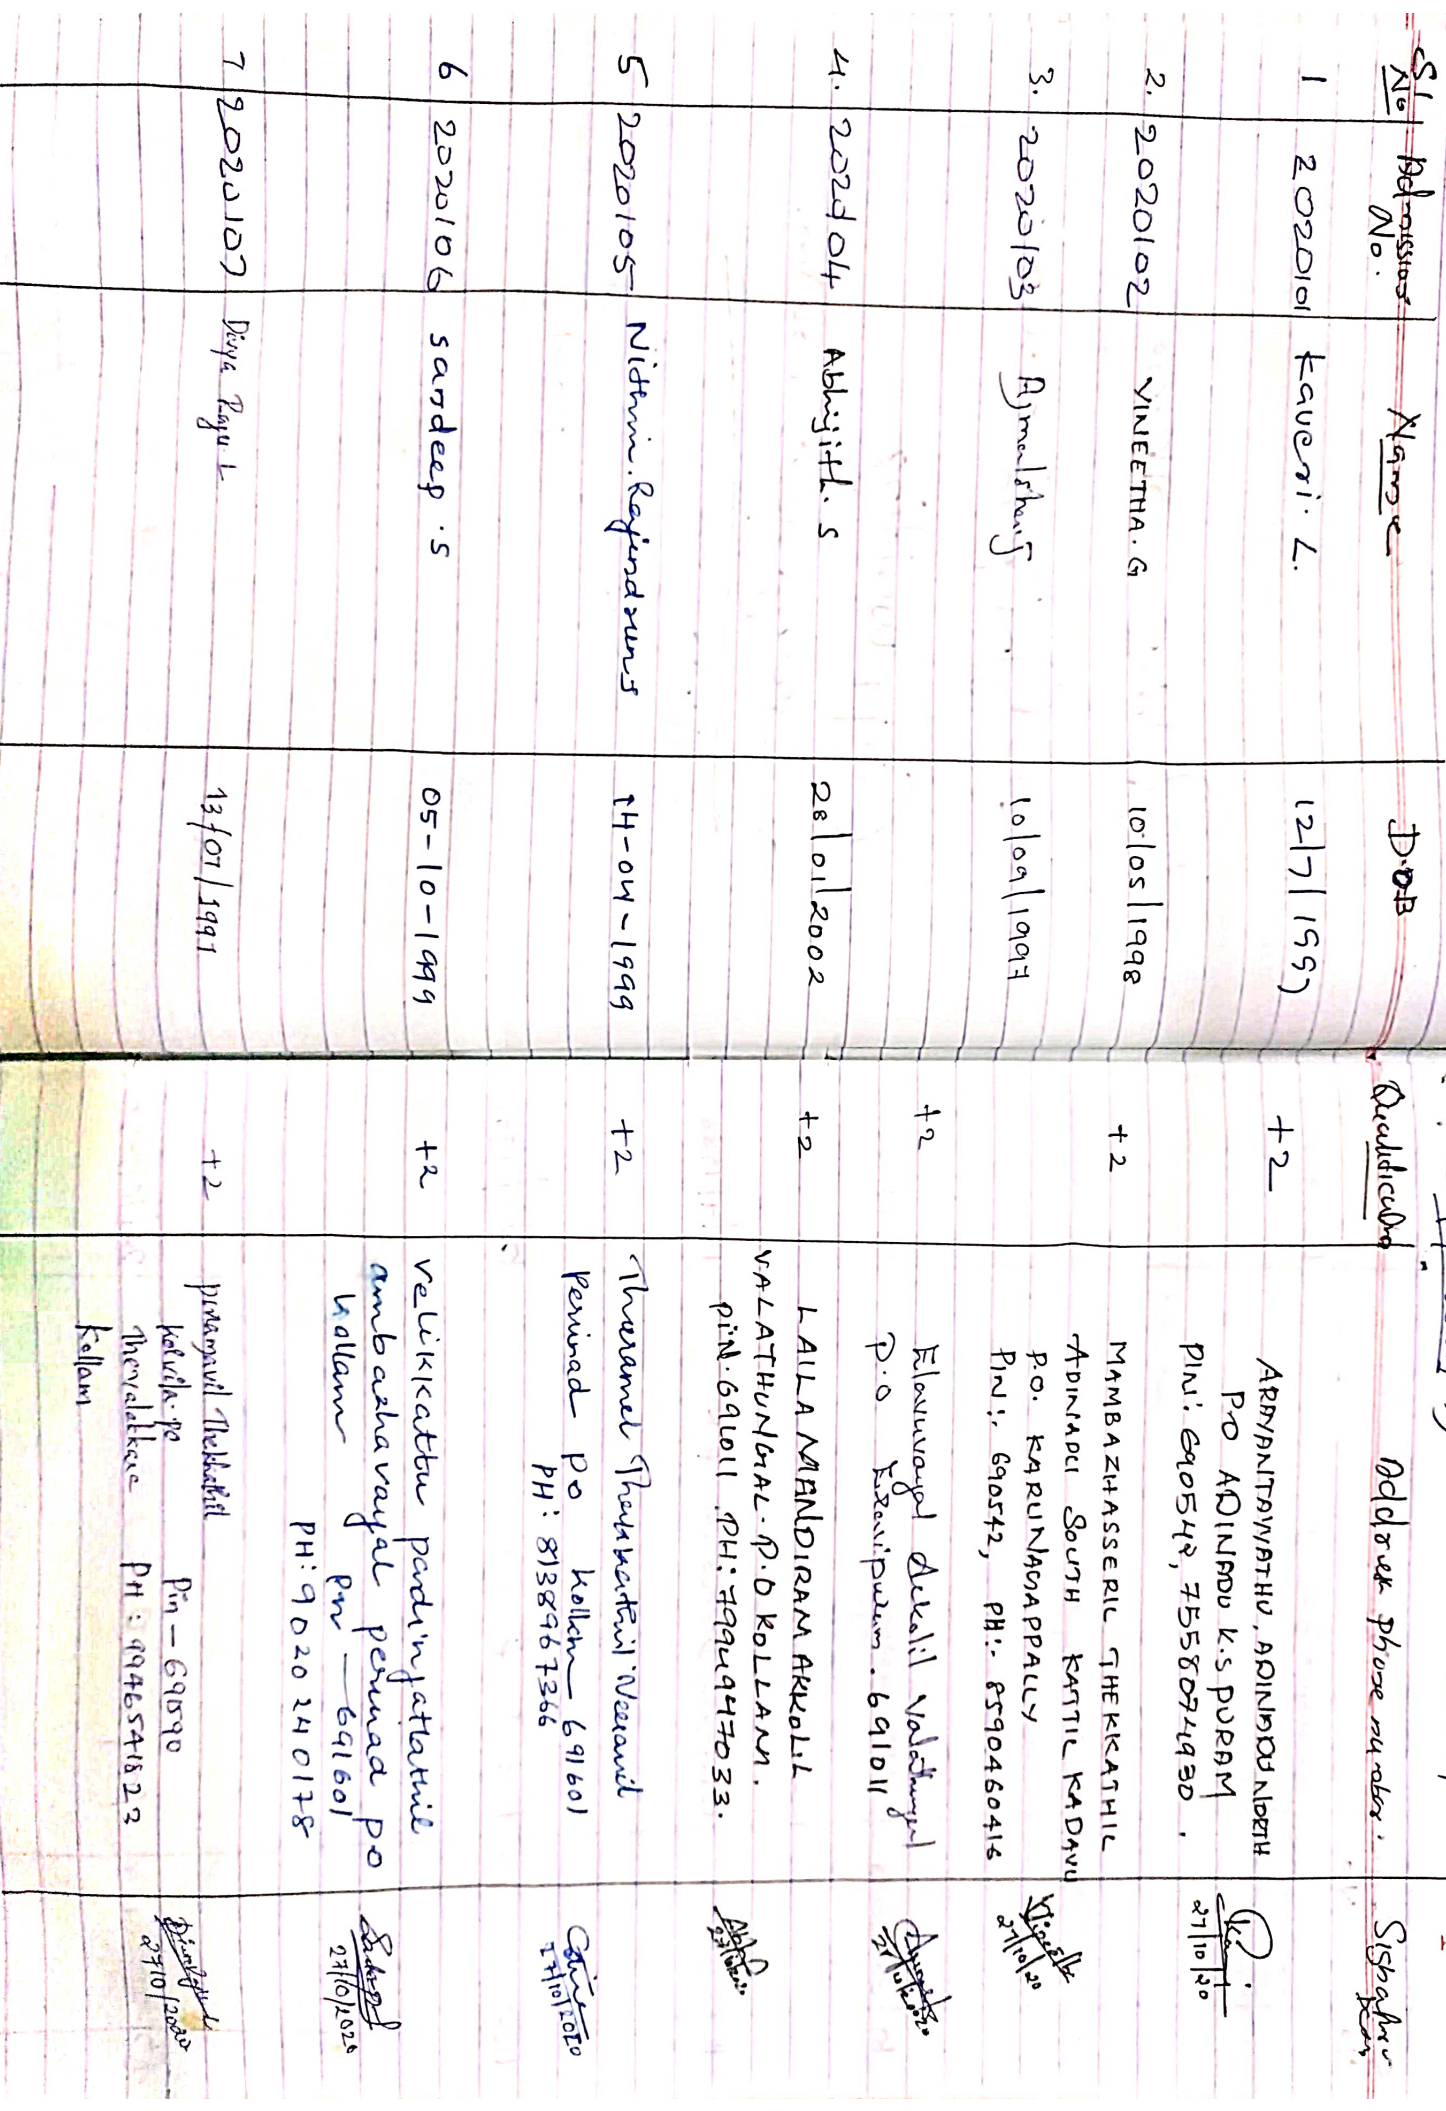 Sl No Admission No. Name D.O.B Qualification Address phone number.
1 2020101 Kaveri. L. 12/7/1999 +2 ARAYANTAYYATHU, ADINADU NORTH
P.O ADINADU K.S PURAM
PIN: 690542, 7558074930.
27/10/20
2. 2020102 VINEETHA. G 10/05/1998 +2 MAMBAZHASSERIL THEKKATHIL
ADINADU SOUTH KATTIL KADAVU
P.O. KARUNAGAPPALLY
PIN:- 690542, PH:- 8590460416
27/10/20
3. 2020103 Ajmalshaji 10/09/1997 +2 Elavuvayal Valathungal
P.O Eravipuram. 691011
4. 2020104 Abhijith. S 28/01/2002 +2 LAILA MANDIRAM AKKOLIL
VALATHUNGAL. P.O KOLLAM.
PIN. 691011 PH: 7994947033.
5 2020105 Nidhin. Rajendran S 14-04-1999 +2
Perinad PO Kollam - 691601
PH: 8138967366
17/10/2020
6 2020106 Sandeep. S 05-10-1999 +2 velikkattu padinjattathil
ambazhavayal perinad PO
Kollam Pin - 691601
PH: 9020240178
27/10/2020
7 2020107 Divya Raju. L 13/07/1991 +2 Thekkathil
Pin - 691590
PH: 9946541823
Kollam
27/10/2020